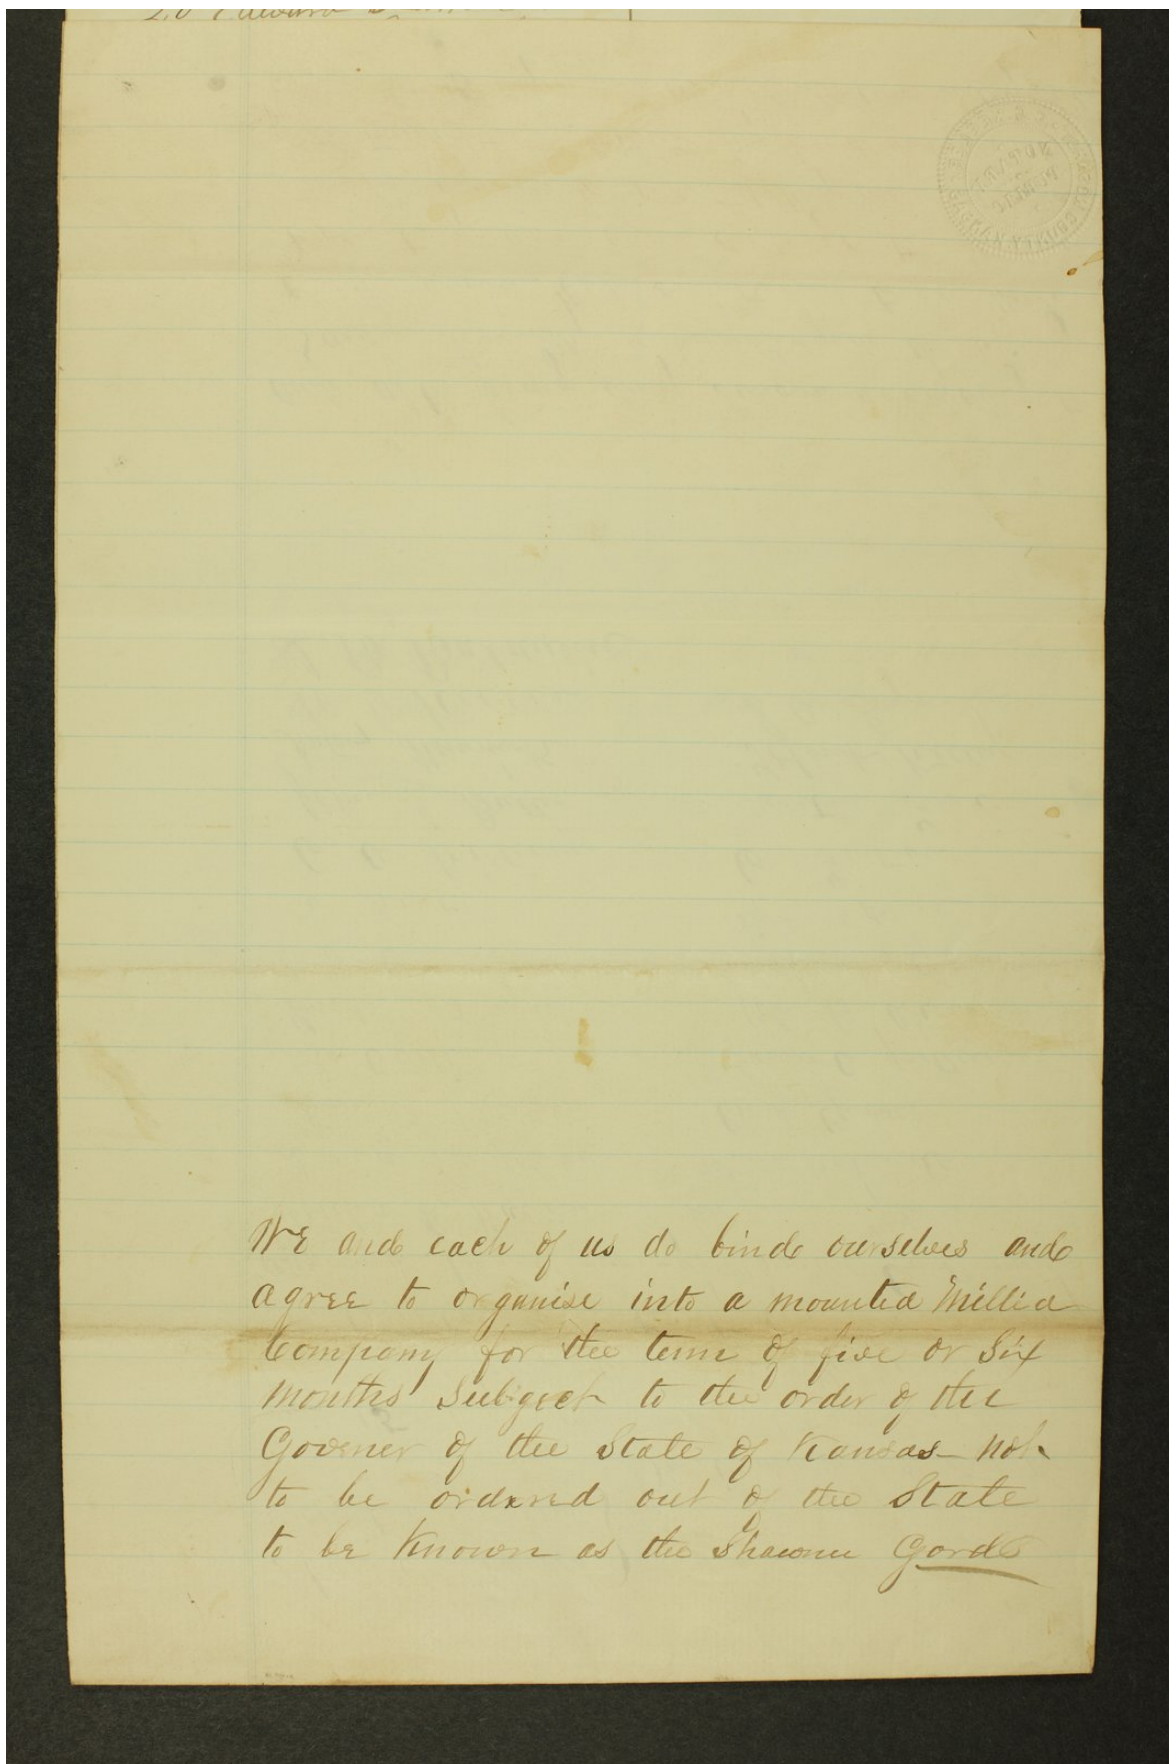 We and each of us do bind ourselves and
agree to organise into a mounted Millia
Company for the term of five or Six
months Subgect to the order of the
Govener of the State of Kansas - not
to be ordered out of the State
to be Known as the Shawnee Gord